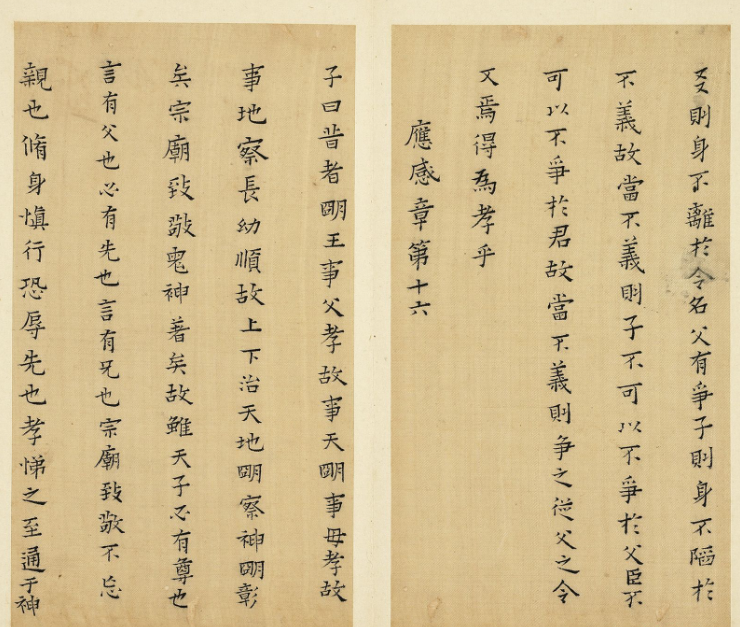 友則身不離於令名父有爭子則身不陷於
不義故當不義則子不可以不爭於父臣不
可以不爭於君故當不義則爭之從父之令
又焉得為孝乎
應感章第十六
子曰昔者明王事父孝故事天明事母孝故
事地察長幼順故上下治天地明察神明彰
矣宗廟致敬鬼神著矣故雖天子必有尊也
言有父也必有先也言有兄也宗廟致敬不忘
親也脩身慎行恐辱先也孝悌之至通于神